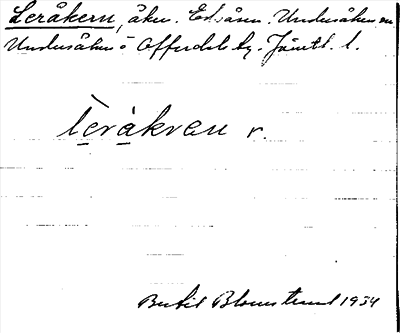 Leråkern, åker. Edsåsen. Undersåkers sn
Undersåkers o Offerdals tg. Jämtl. l.
lerákræn r.
Bertil Blomstrand 1934